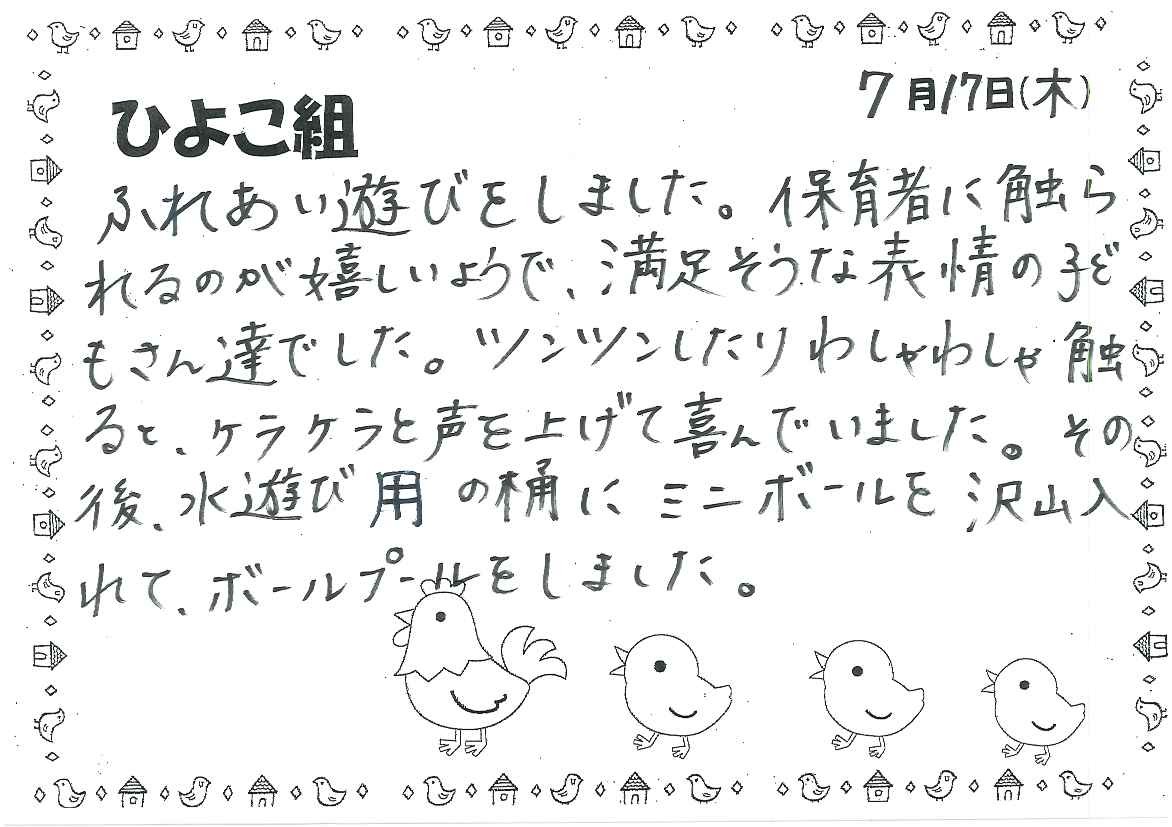 7月17日(木)
ひよこ組
ふれあい遊びをしました。保育者に触ら
れるのが嬉しいようで、満足そうな表情の子ど
もさん達でした。ツンツンしたりわしゃわしゃ触
ると、ケラケラと声を上げて喜んでいました。その
後、水遊び用の桶にミニボールを沢山入
れて、ボールプールをしました。